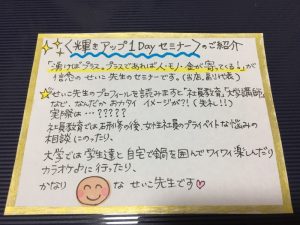 〈輝きアップ1Dayセミナー〉のご紹介
「導けばプラス。プラスであれば人・モノ・金が寄ってくる!」が
信念の せいこ先生のセミナーです。(当店、副代表)
せいこ先生のプロフィールを読みますと"社員教育""大学講師"
など、なんだか おカタイ イメージが?!(失礼!!)
実際は…?????
社員教育では お形の後、女性社員のプライベートな悩みの
相談にのったり、
大学では学生達と自宅で鍋を囲んでワイワイ楽しんだり
カラオケ♪に行ったり、
かなり な せいこ先生です♡